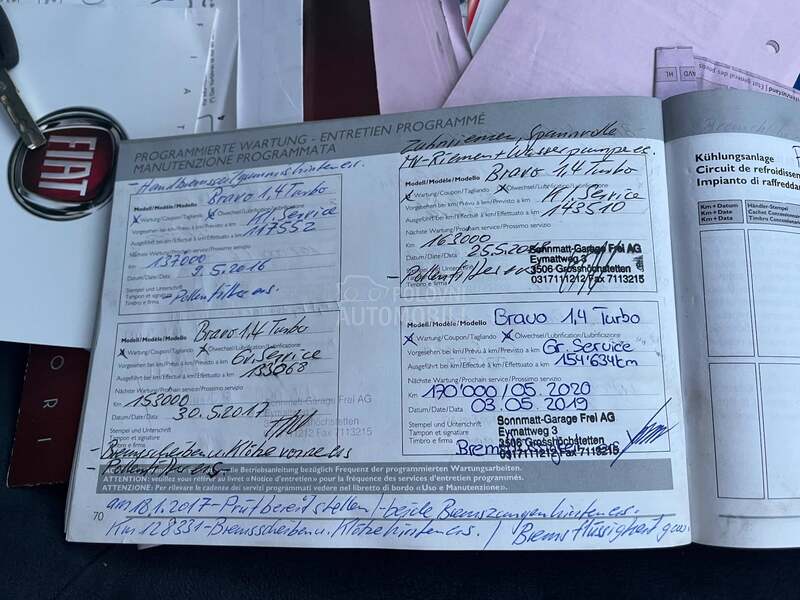 PROGRAMMIERTE WARTUNG - ENTRETIEN PROGRAMMÉ
MANUTENZIONE PROGRAMMATA
Bravo 1,4 Turbo
Modell/Modèle/Modello
Wartung/Coupon/Tagliando Ölwechsel/Lubrification/Lubrificazione
Kl. Service
Vorgesehen bei km/Prévu à km/Previsto a km
117552
Ausgeführt bei km/Effectué à km/Effettuato a km
Nächste Wartung/Prochain service/Prossimo servizio
Km 137000
Datum/Date/Data 9.5.2016
Stempel und Unterschrift
Tampon et signature
Timbro e firma
- Pollenfilter ers.
Zahnriemen, Spannrolle
MV-Riemen + Wasserpumpe ers.
Bravo 1,4 Turbo
Modell/Modèle/Modello
Wartung/Coupon/Tagliando Ölwechsel/Lubrification/Lubrificazione
Kl. Service
Vorgesehen bei km/Prévu à km/Previsto a km
143510
Ausgeführt bei km/Effectué à km/Effettuato a km
Nächste Wartung/Prochain service/Prossimo servizio
Km 163000
Datum/Date/Data 25.5.
Sonnmatt-Garage Frei AG
Eymattweg 3
3506 Grosshöchstetten
0317111212 Fax 7113215
- Pollenfilter ers
Timbro e firma
Bravo 1,4 Turbo
Modell/Modèle/Modello
Wartung/Coupon/Tagliando Ölwechsel/Lubrification/Lubrificazione
Gr. Service
Vorgesehen bei km/Prévu à km/Previsto a km
133068
Ausgeführt bei km/Effectué à km/Effettuato a km
Nächste Wartung/Prochain service/Prossimo servizio
Km 153000
Datum/Date/Data 30.5.2017
Stempel und Unterschrift
Tampon et signature
Timbro e firma
- Bremsscheiben u. Klötze vorne ers
- Pollenfilter ers
Modell/Modèle/Modello Bravo 1,4 Turbo
Wartung/Coupon/Tagliando Ölwechsel/Lubrification/Lubrificazione
Vorgesehen bei km/Prévu à km/Previsto a km Gr. Service
Ausgeführt bei km/Effectué à km/Effettuato a km 154'634 km
Nächste Wartung/Prochain service/Prossimo servizio
Km 170'000 / 05.2020
Datum/Date/Data 03.05.2019
Stempel und Unterschrift
Tampon et signature
Timbro e firma
Sonnmatt-Garage Frei AG
Eymattweg 3
3506 Grosshöchstetten
0317111212 Fax 7113215
die Betriebsanleitung bezüglich Frequent der programmierten Wartungsarbeiten.
ATTENTION: veuillez vous référer au livret «Notice d'entretien» pour la fréquence des services d'entretien programmés.
ATTENZIONE: Per rilevare le cadenze dei servizi programmati vedere nel libretto di bordo «Uso e Manutenzione».
70
am 18.1.2017 - Prüfbereitstellen / - beide Bremszangen hinten ers.
Km 128331 - Bremsscheiben u. Klötze hinten ers. / Bremsflüssigkeit gew.
Kühlungsanlage
Circuit de refroidissem
Impianto di raffreddam
Km + Datum
Km + Date
Km + Data
Händler-Stempel
Cachet Concessionna
Timbro Concessionari
FIAT
POLOVNI
AUTOMOBILI